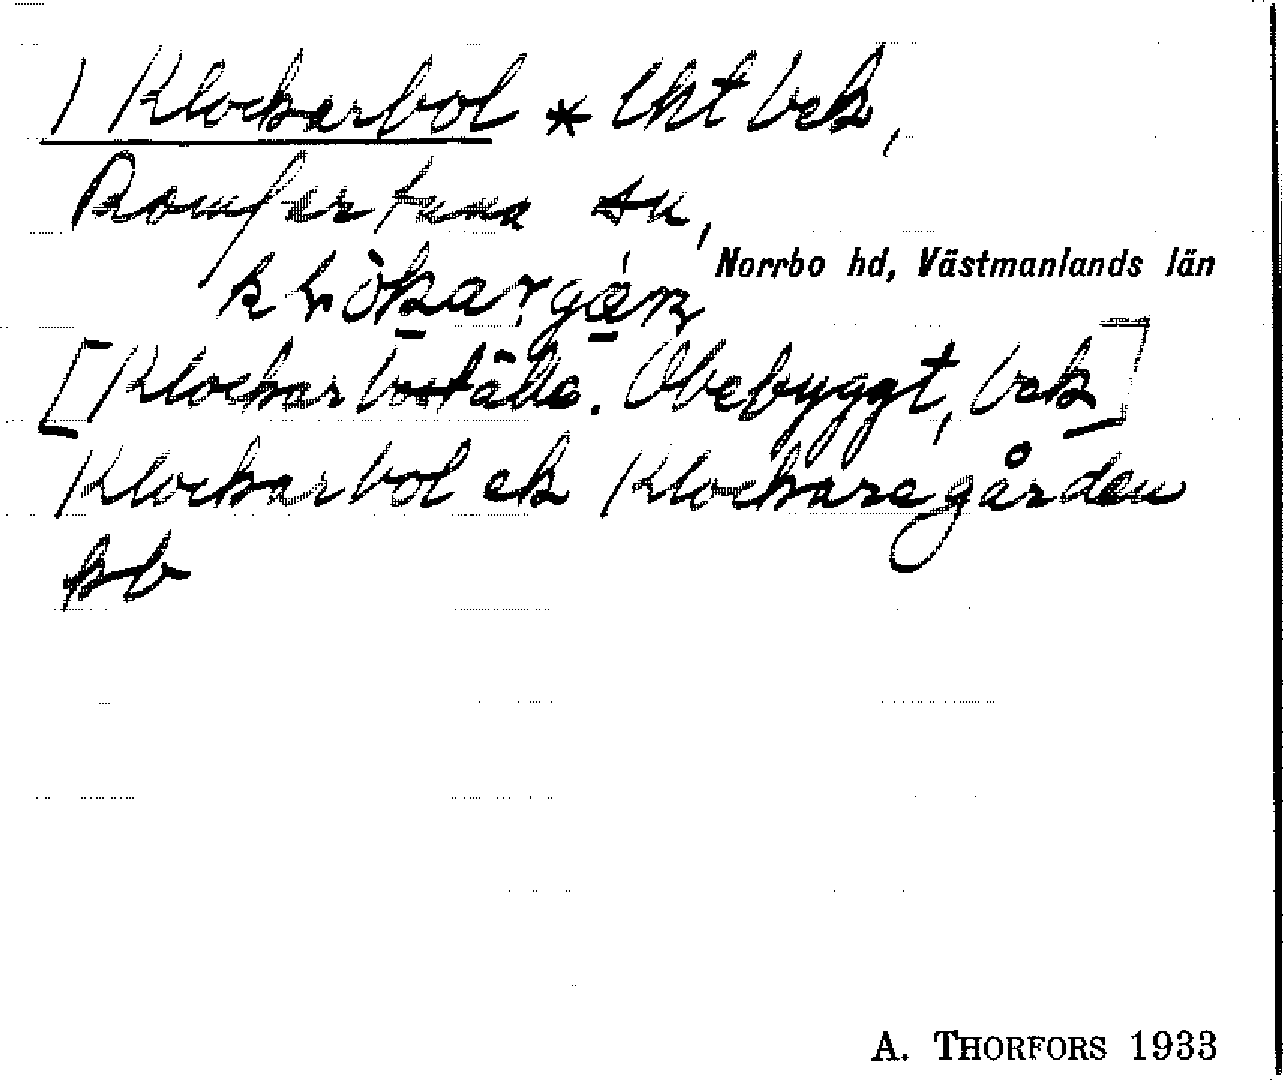 1 Klockarbol * Uht bek,
Romfertuna sn,
Norrbo hd, Västmanlands län
[Klockarboställe. Obebyggt, bek]
Klockarbol ek Klockaregården
kb
A. THORFORS 1933